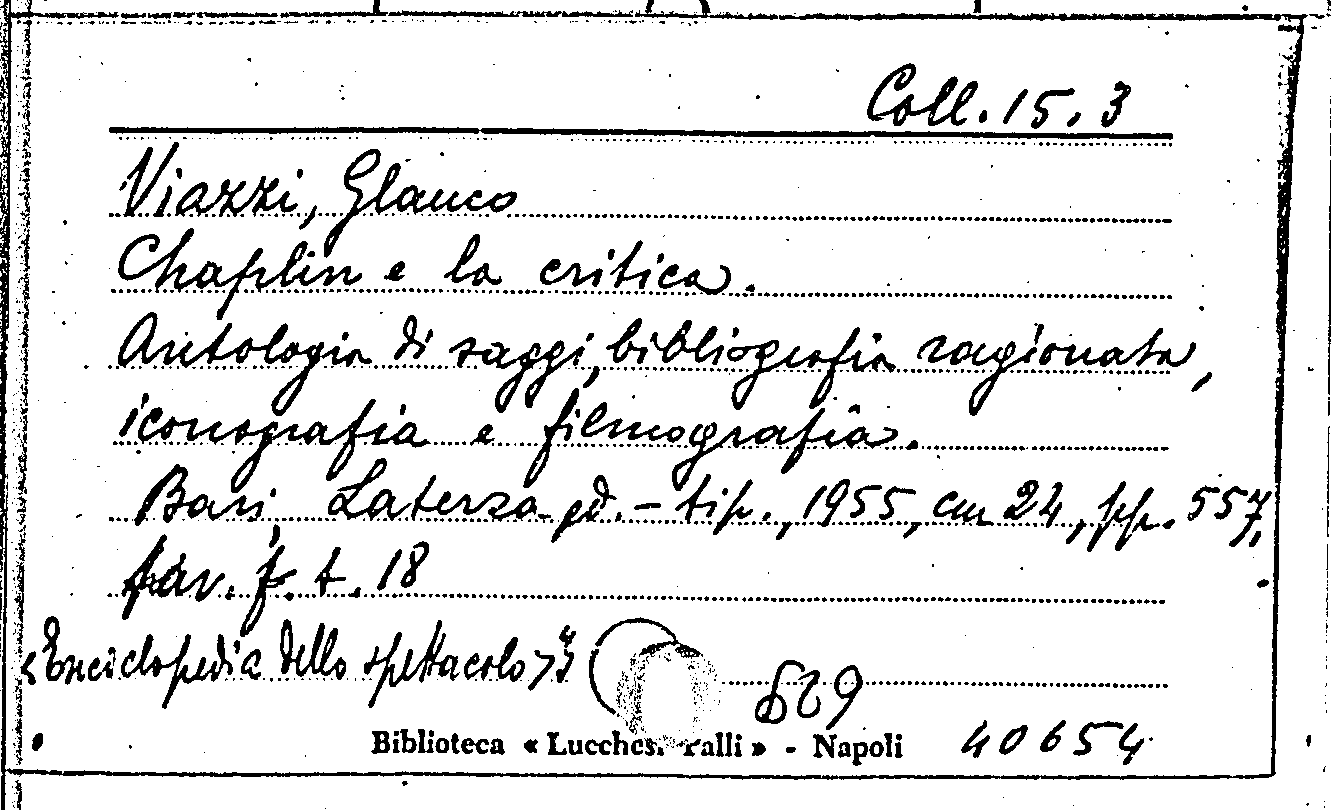 Coll. 15. 3
Viazzi, Glauco
Chaplin e la critica.
Antologia di saggi, bibliografia ragionata,
iconografia e filmografia.
Bari, Laterza ed. - tip., 1955, cm 24, pp. 557,
tav. f. t. 18
«Enciclopedia dello spettacolo»
629
Biblioteca « Lucchesi Palli » - Napoli
40654